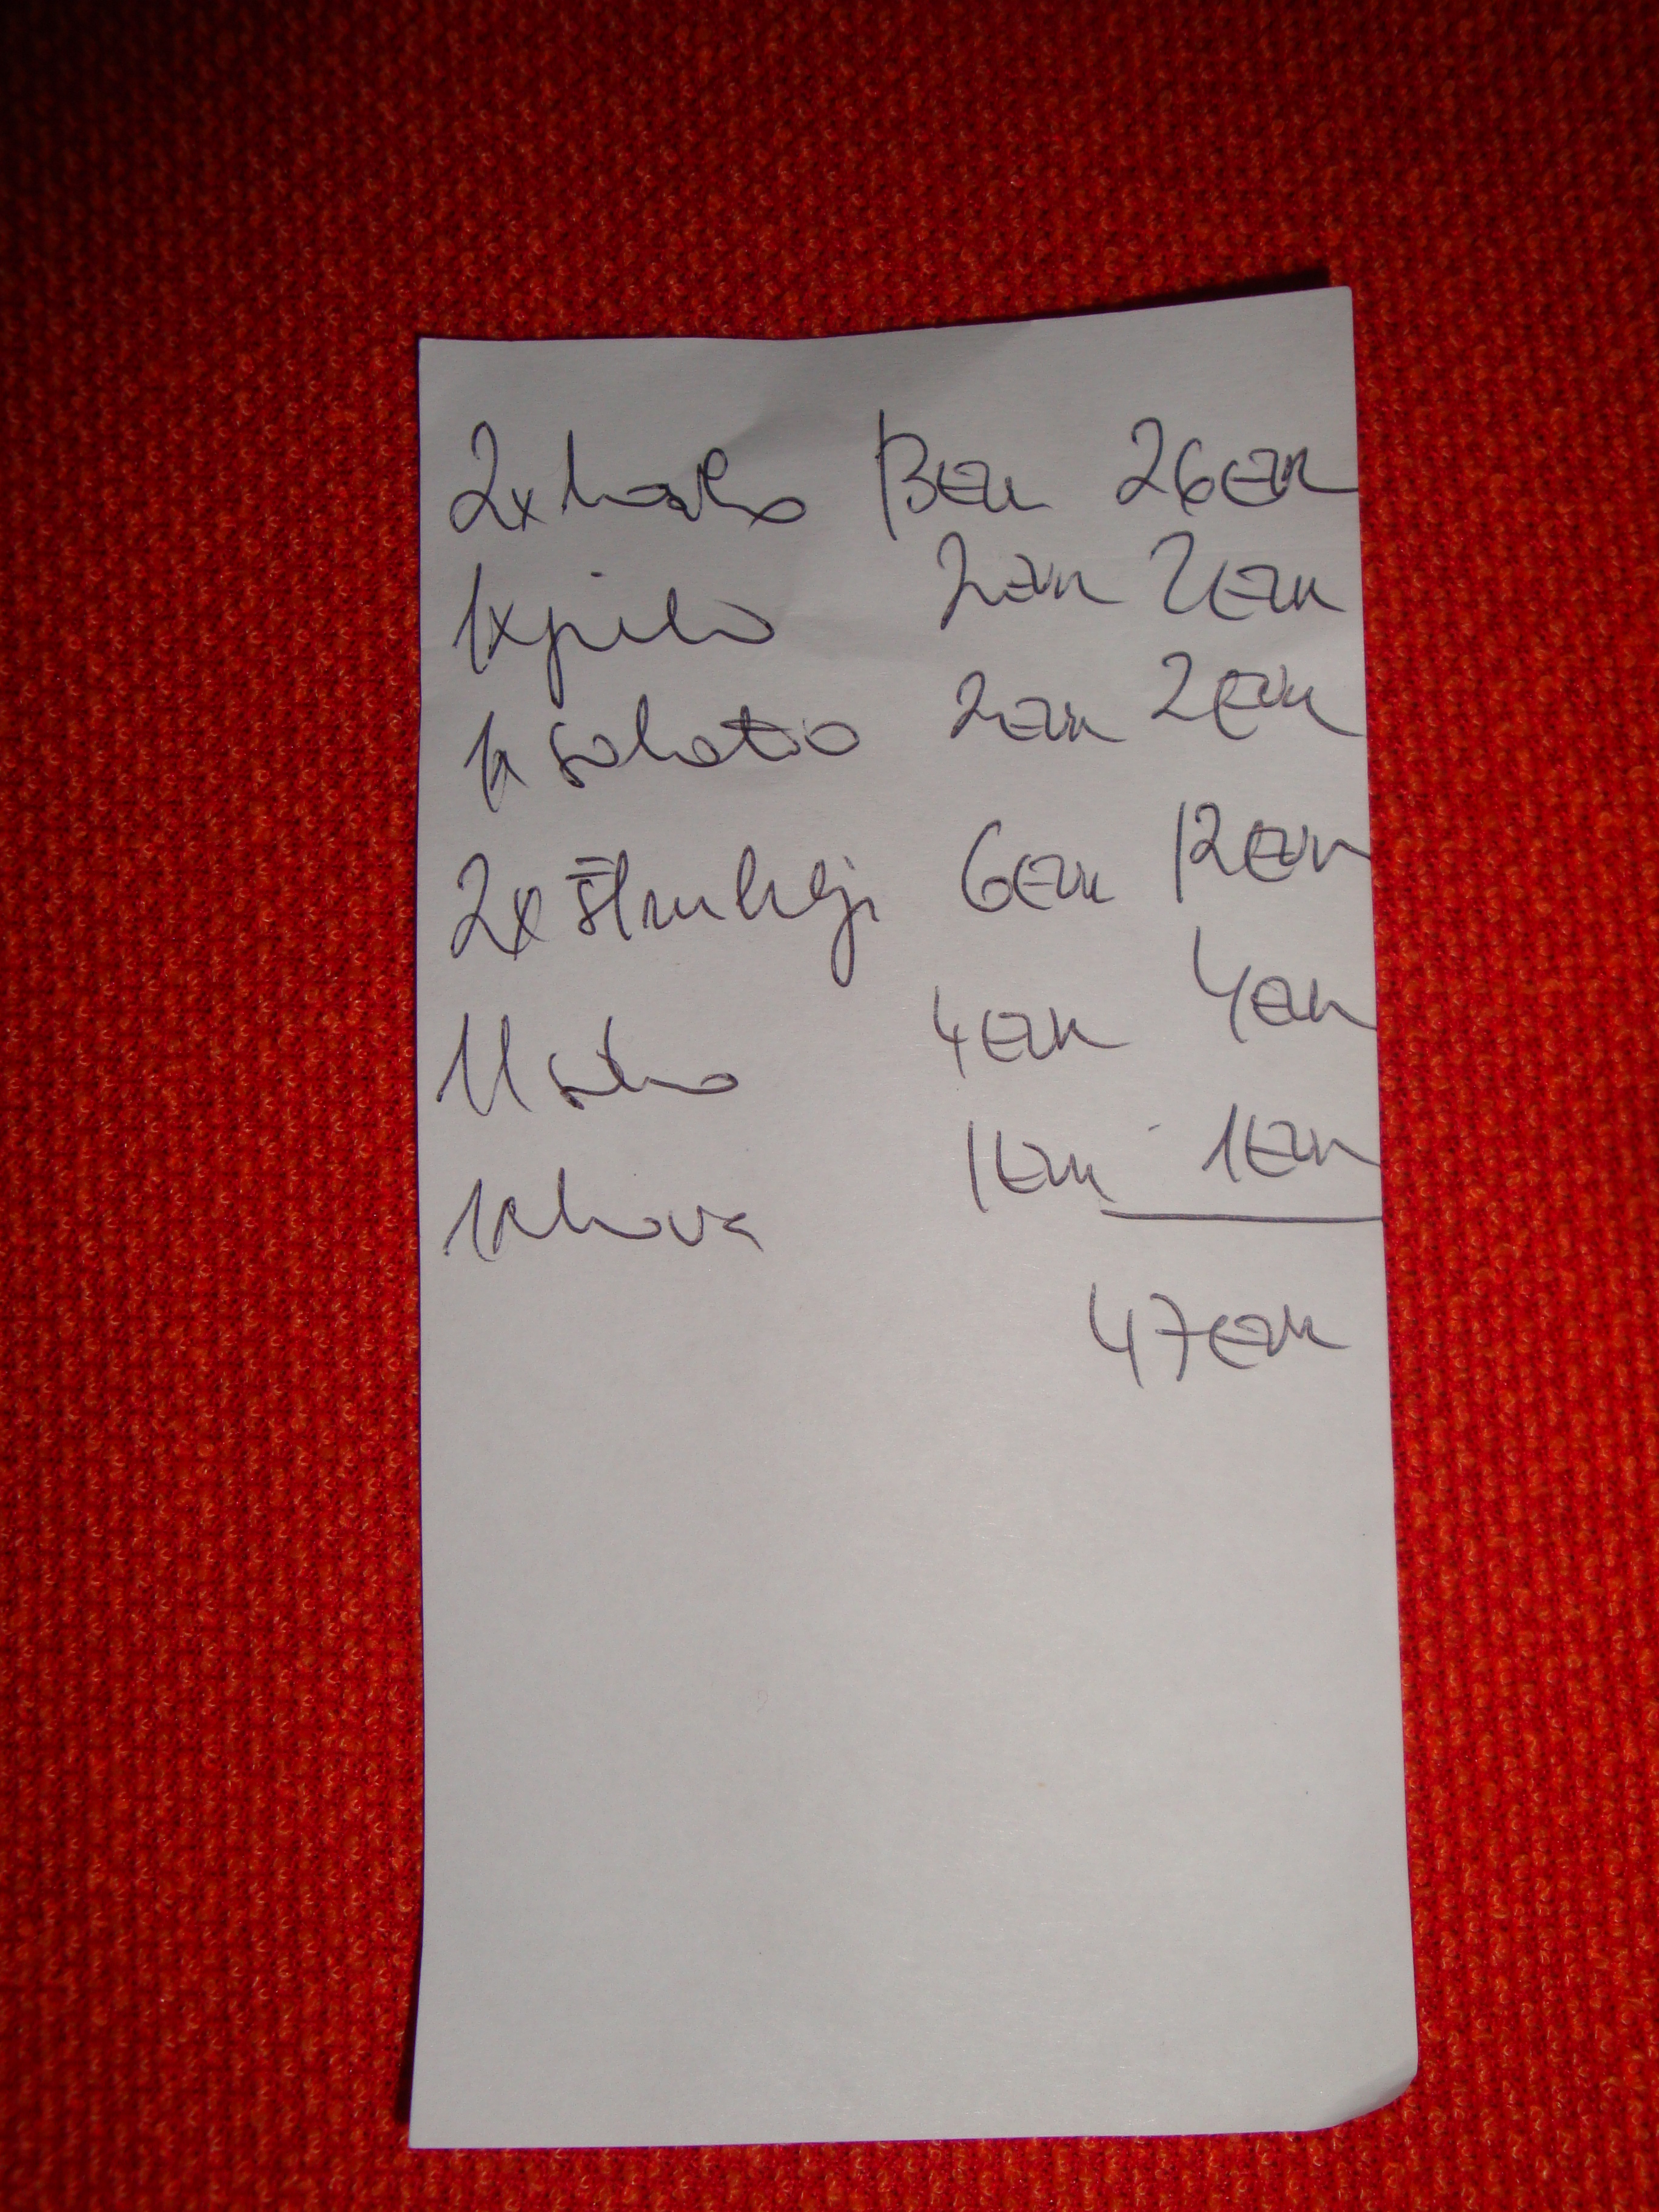 2x kosilo 13EUR 26EUR
1x pivo 2EUR 2EUR
1x solata 2EUR 2EUR
2x štruklji 6EUR 12EUR
1l 4EUR 4EUR
1x kava 1EUR 1EUR
47EUR